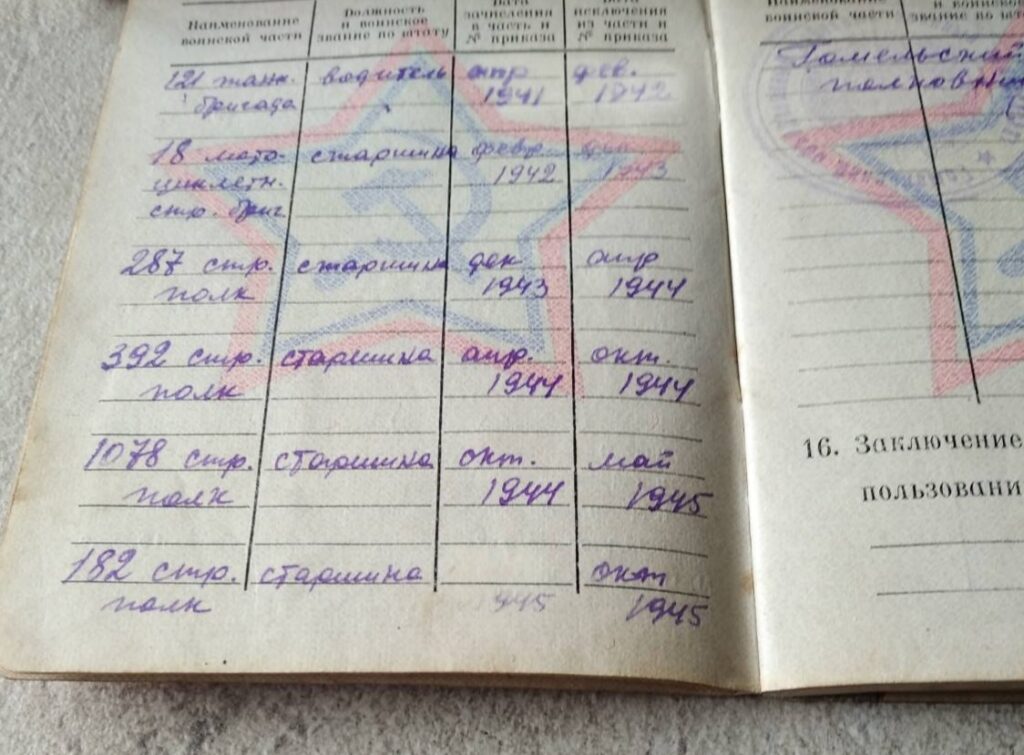 Наименование
воинской части
Должность
и воинское
звание по штату
Дата
зачисления
в часть и
№ приказа
Дата
исключения
из части и
№ приказа
121 танк. водитель апр фев.
бригада 1941 1942
18 мото- старшина февр
циклетн. 1942 1943
стр. бриг
287 стр. старшина дек апр
полк 1943 1944
392 стр. старшина апр. окт.
полк 1944 1944
1078 стр. старшина окт. май
полк 1944 1945
182 стр. старшина окт
полк 945 1945
Наименование
воинской части
и воинское
звание по шта
Гомельский
16. Заключение
пользовани